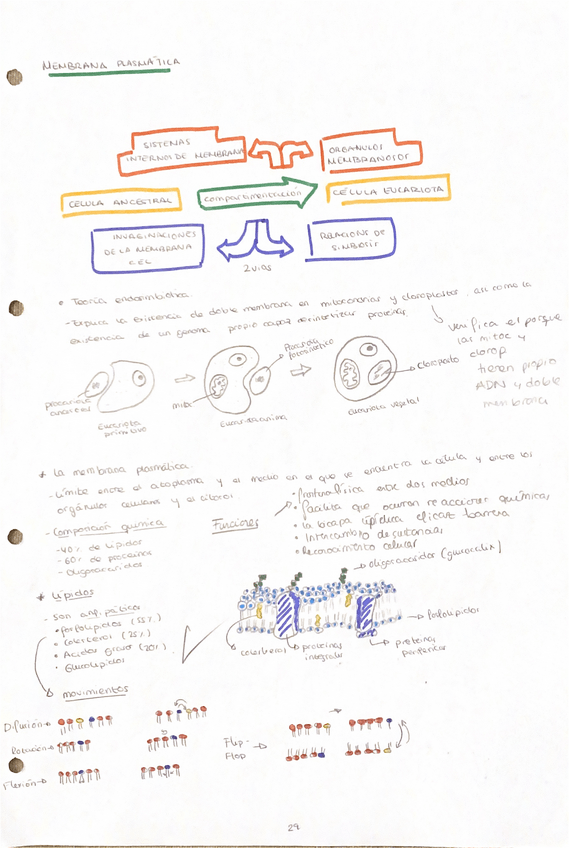 MEMBRANA PLASMÁTICA
SISTEMAS
INTERNOS DE MEMBRANA
ORGANULOS
MEMBRANOSOS
CÉLULA ANCESTRAL
compartimentación
CÉLULA EUCARIOTA
INVAGINACIONES
DE LA MEMBRANA
CEL
2 vías
RELACIONS DE
SIMBIOSIS
Teoría endosimbiótica.
- Explica la existencia de doble membrana en mitocondrias y cloroplastos, así como la
existencia de un genoma propio capaz de sintetizar proteínas.
verifica el porque
las mitoc y
clorop
tienen propio
ADN y doble
membrana
Procariota
fotosintético
cloroplasto
mito
Eucariota
primitivo
Eucariota anima
eucariota vegetal
* La membrana plasmática.
- Límite entre el citoplasma y el medio en el que se encuentra la célula y entre los
orgánulos celulares y el citosol
- Composición química
- 40% de lípidos
- 60% de proteínas
- Oligosacáridos
Funciones
• frontera física entre dos medios
• facilita que ocurran reacciones químicas
• la bicapa lipídica eficaz barrera
• Intercambio de sustancias
• Reconocimiento celular
* Lípidos
- Son anfipáticos
• fosfolípidos (55%)
• Colesterol (25%)
• Acidos grasos (20%)
• Glucolípidos
movimientos
oligosacáridos (glucocalix)
fosfolípidos
colesterol
proteínas
integrales
proteínas
periféricas
Difusión
Rotación
Flexión
Flip-
Flop
29